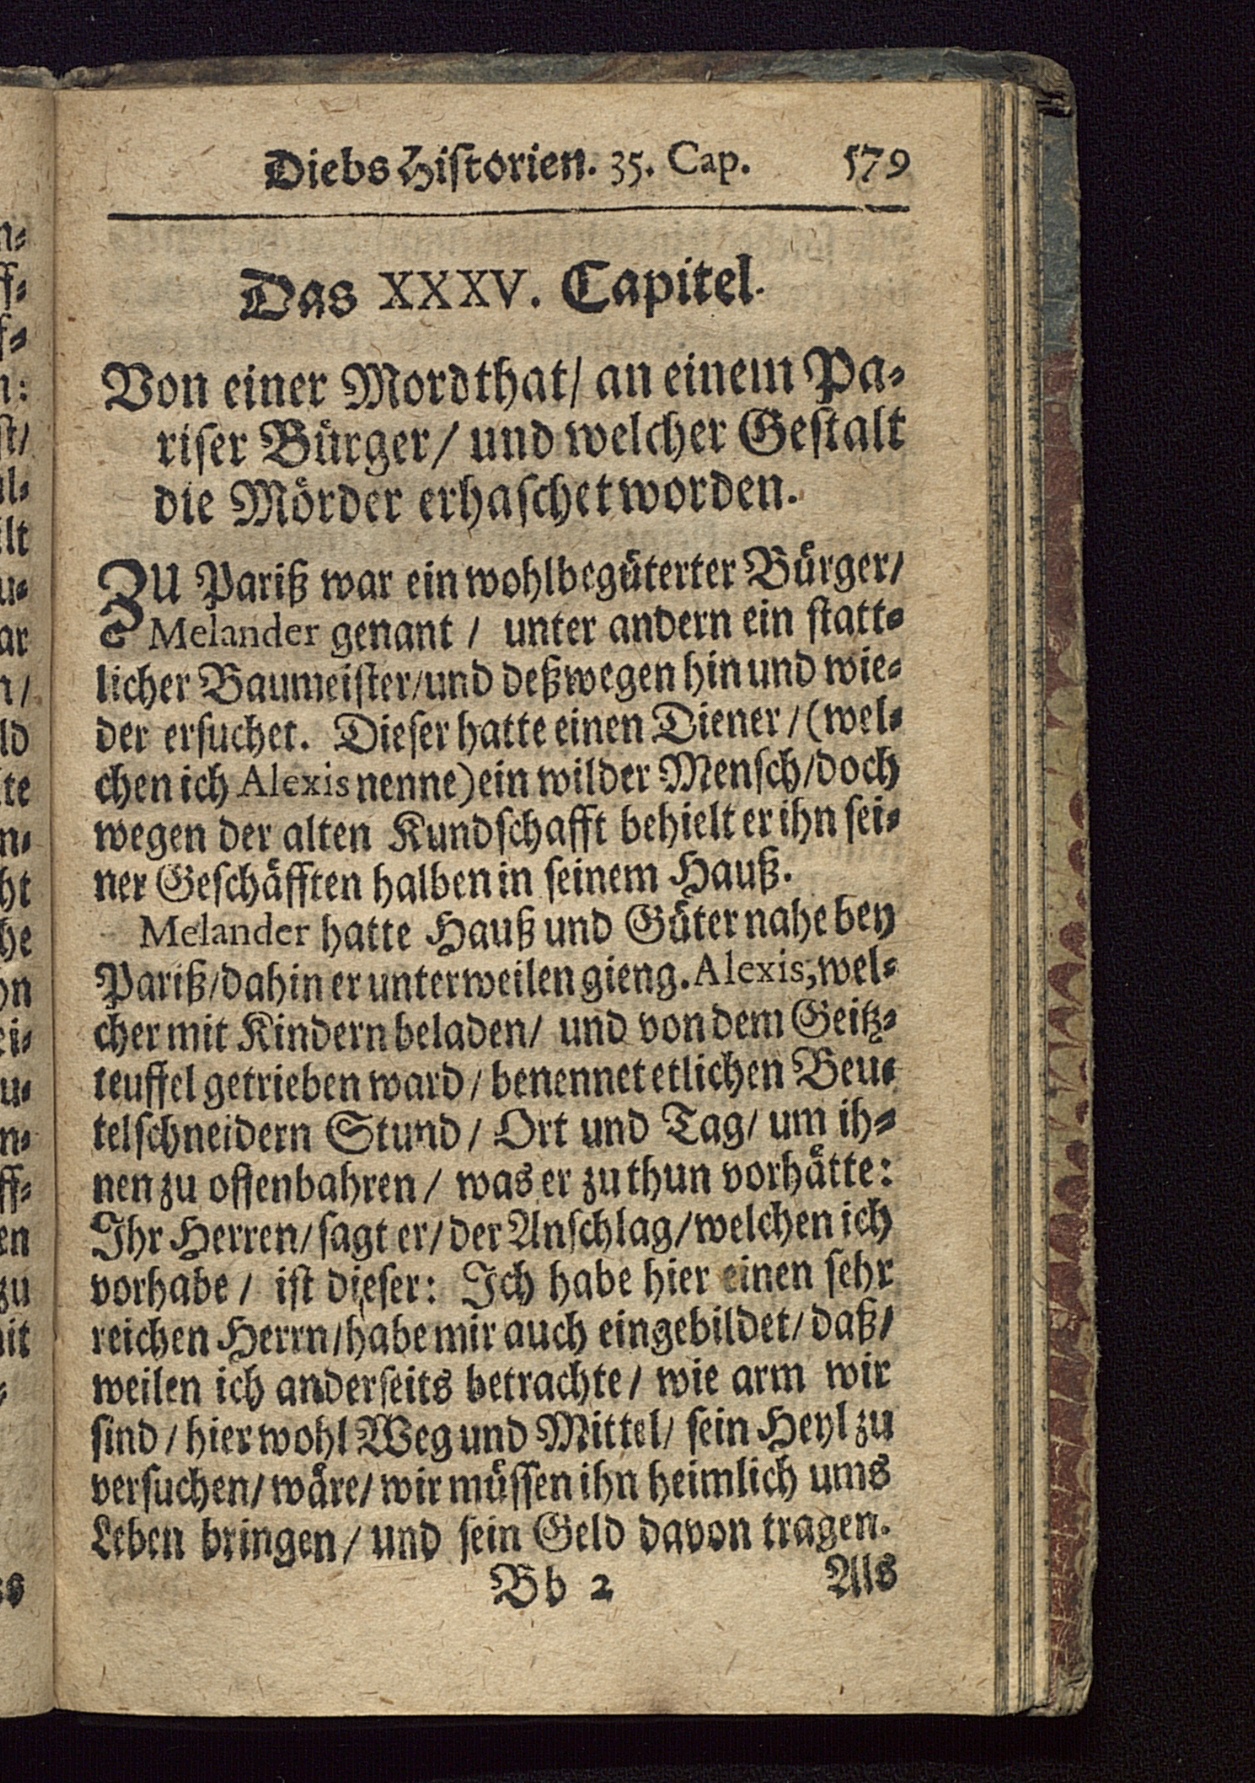 Diebs Historien. 35. Cap. 579
Das XXXV. Capitel.
Von einer Mordthat/ an einem Pa⸗
riser Bürger/ und welcher Gestalt
die Mörder erhaschet worden.
ZU Pariß war ein wohlbegüterter Bürger/
Melander genant / unter andern ein statt⸗
licher Baumeister/und deßwegen hin und wie⸗
der ersuchet. Dieser hatte einen Diener / (wel⸗
chen ich Alexis nenne) ein wilder Mensch/doch
wegen der alten Kundschafft behielt er ihn sei⸗
ner Geschäfften halben in seinem Hauß.
Melander hatte Hauß und Güter nahe bey
Pariß/dahin er unterweilen gieng. Alexis, wel⸗
cher mit Kindern beladen/ und von dem Geitz⸗
teuffel getrieben ward / benennet etlichen Beu⸗
telschneidern Stund / Ort und Tag/ um ih⸗
nen zu offenbahren / was er zu thun vorhätte:
Ihr Herren/ sagt er/ der Anschlag/welchen ich
vorhabe / ist dieser: Ich habe hier einen sehr
reichen Herrn/habe mir auch eingebildet/ daß/
weilen ich anderseits betrachte / wie arm wir
sind / hier wohl Weg und Mittel/ sein Heyl zu
versuchen/ wäre/ wir müssen ihn heimlich ums
Leben bringen / und sein Geld davon tragen.
Bb 2 Als